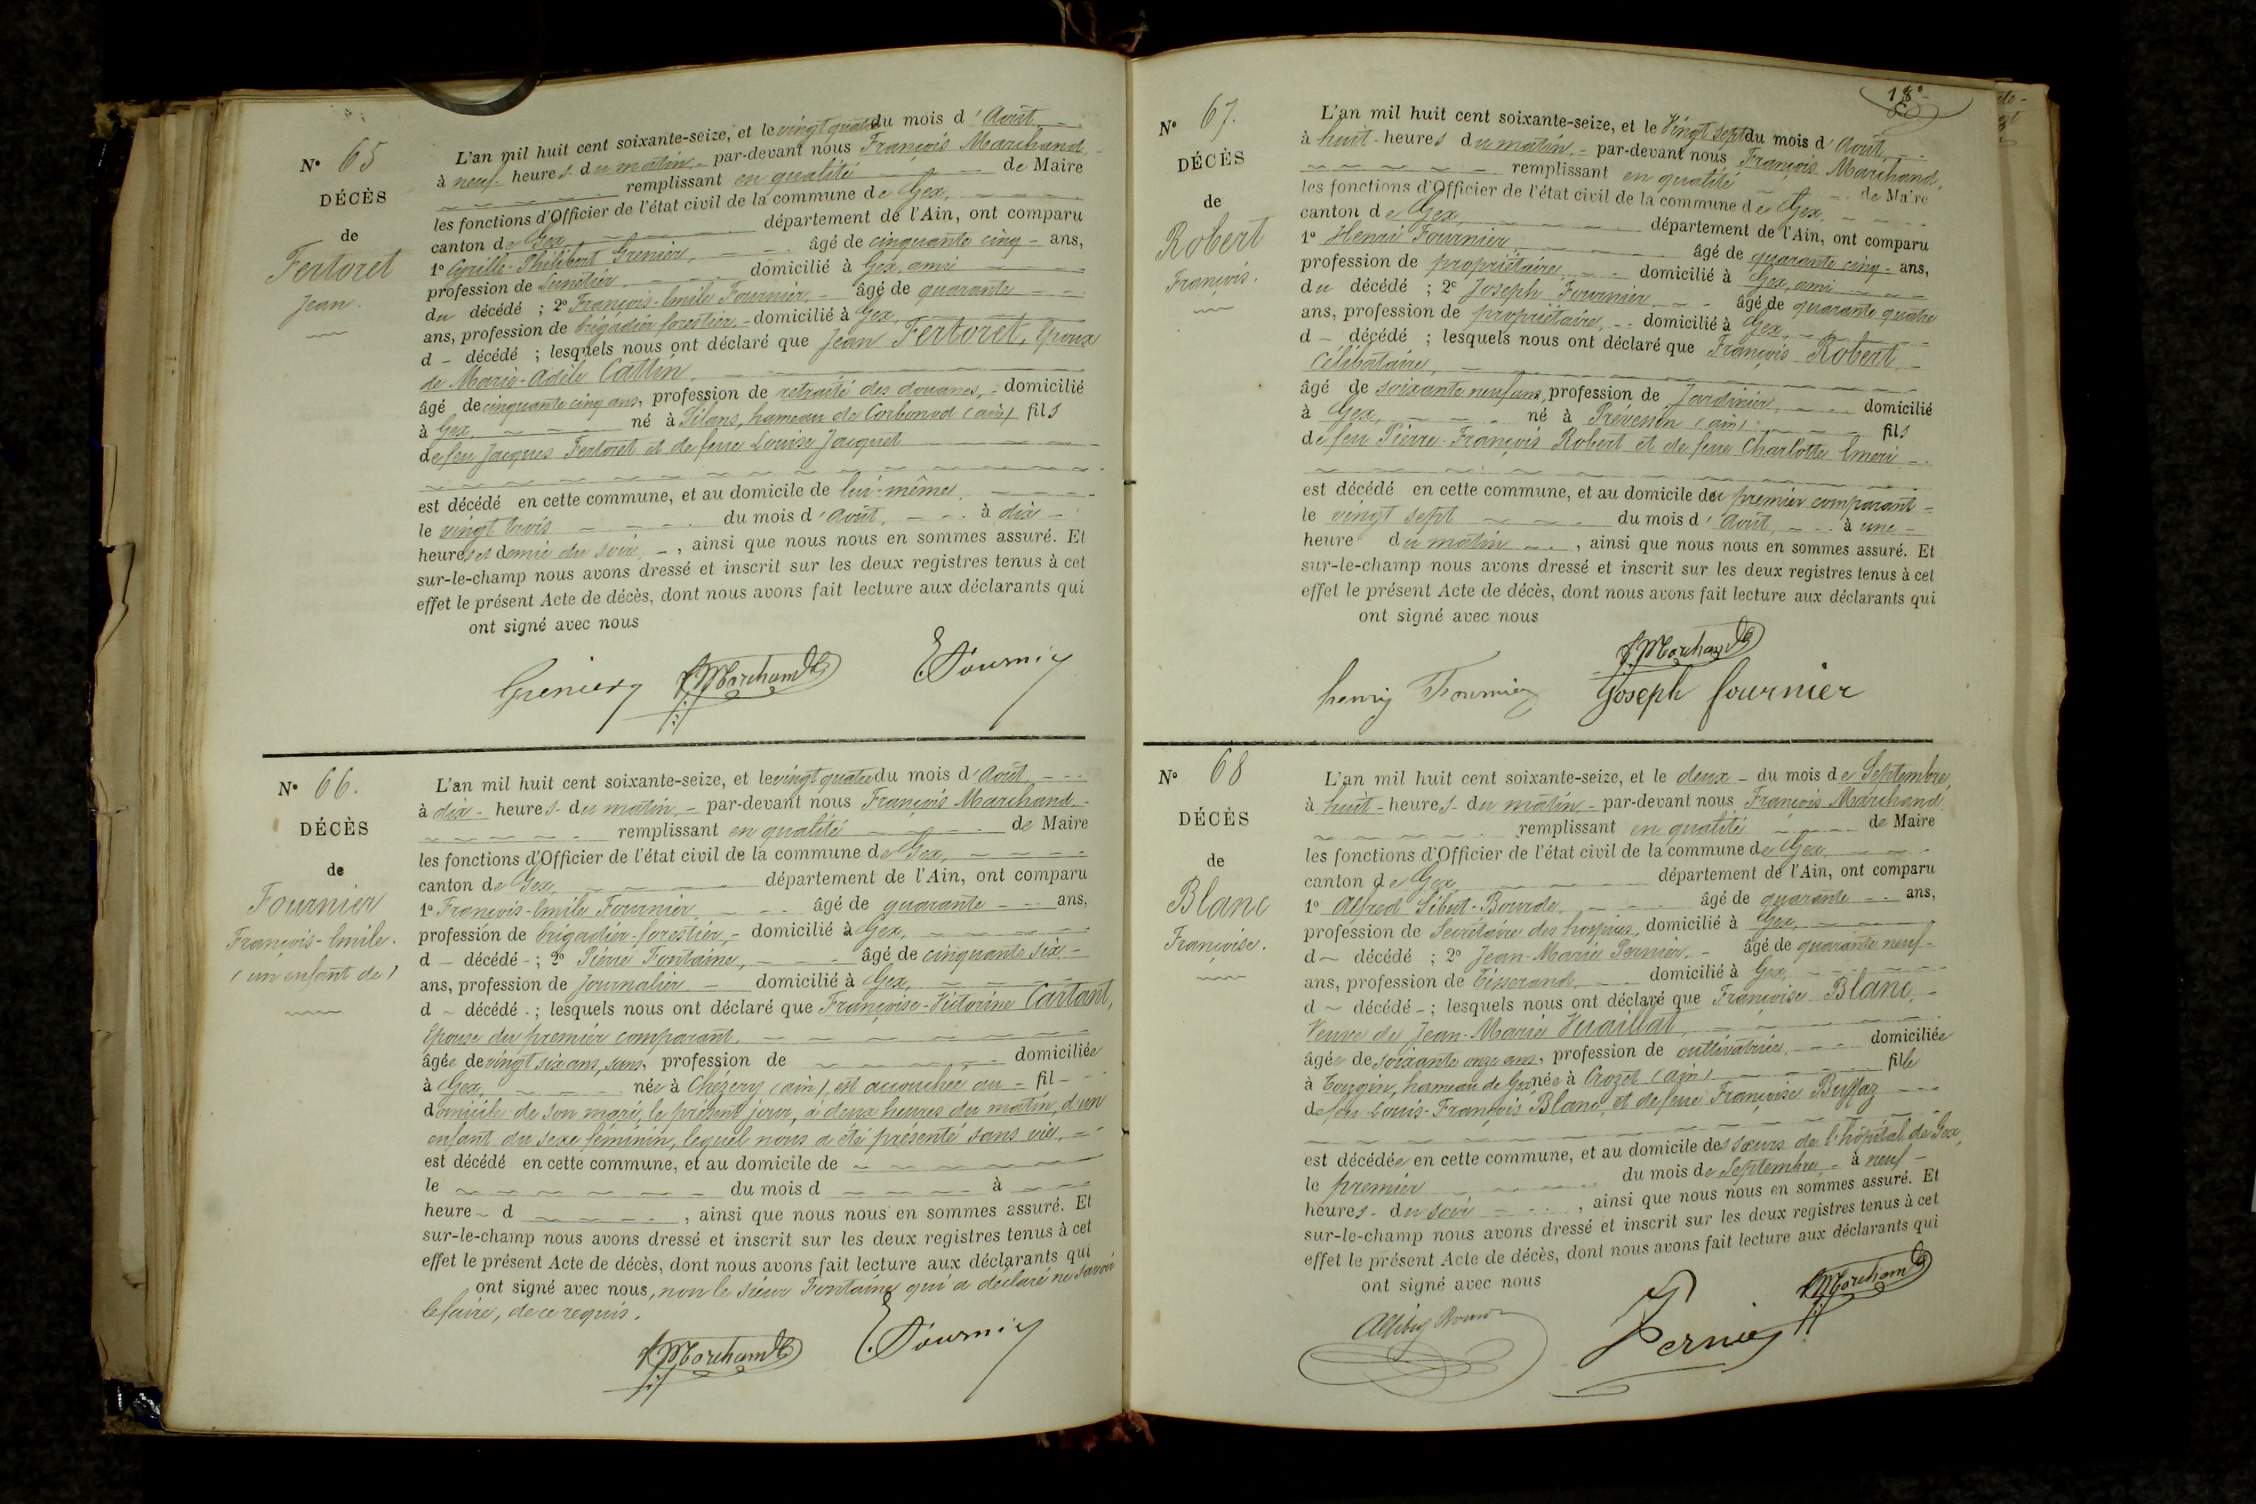 N° 65
DÉCÈS
de
Fertoret
Jean.
L'an mil huit cent soixante-seize, et le vingt quatre du mois d'Août
à neuf heures du matin par-devant nous François Marchand
remplissant en qualité de Maire
les fonctions d'Officier de l'état civil de la commune de Gex,
canton de Gex, département de l'Ain, ont comparu
1° Cyrille-Philibert Grenier, âgé de cinquante cinq ans,
profession de Lunetier domicilié à Gex, ami
du décédé ; 2° François-Emile Fournier, âgé de quarante
ans, profession de brigadier forestier, domicilié à Gex,
d décédé ; lesquels nous ont déclaré que Jean Fertoret, Epoux
de Marie-Adèle Cattin,
âgé de cinquante cinq ans, profession de retraité des douanes, domicilié
à Gex, né à Silans, hameau de Corbonod (ain) fils
de feu Jacques Fertoret et de feue Louise Jacquet
est décédé en cette commune, et au domicile de lui-même,
le vingt trois du mois d'Août, à dix
heures et demie du soir, ainsi que nous nous en sommes assuré. Et
sur-le-champ nous avons dressé et inscrit sur les deux registres tenus à cet
effet le présent Acte de décès, dont nous avons fait lecture aux déclarants qui
ont signé avec nous
Grenier F. Marchand E. Fournier
N° 66.
DÉCÈS
de
Fournier
François-Emile.
(un enfant de)
L'an mil huit cent soixante-seize, et le vingt quatre du mois d'Août
à dix heures du matin, par-devant nous François Marchand
remplissant en qualité de Maire
les fonctions d'Officier de l'état civil de la commune de Gex,
canton de Gex, département de l'Ain, ont comparu
1° François-Emile Fournier, âgé de quarante ans,
profession de brigadier-forestier, domicilié à Gex,
d décédé ; 2° Pierre Fontaine, âgé de cinquante six
ans, profession de Journalier domicilié à Gex,
d décédé ; lesquels nous ont déclaré que Françoise-Victorine Cartant,
Epouse du premier comparant,
âgée de vingt six ans, sans, profession de domiciliée
à Gex, née à Chézery (ain), est accouchée au fil
domicile de son mari, le présent jour, à deux heures du matin, d'un
enfant du sexe féminin, lequel nous a été présenté sans vie,
est décédé en cette commune, et au domicile de
le du mois d à
heure d , ainsi que nous nous en sommes assuré. Et
sur-le-champ nous avons dressé et inscrit sur les deux registres tenus à cet
effet le présent Acte de décès, dont nous avons fait lecture aux déclarants qui
ont signé avec nous, non le sieur Fontaine qui a déclaré ne savoir
le faire, de ce requis.
F. Marchand E. Fournier
18e
N° 67.
DÉCÈS
de
Robert
François.
L'an mil huit cent soixante-seize, et le Vingt sept du mois d'Août,
à huit heures du matin, par-devant nous François Marchand,
remplissant en qualité de Maire
les fonctions d'Officier de l'état civil de la commune de Gex,
canton de Gex, département de l'Ain, ont comparu
1° Henri Fournier, âgé de quarante cinq ans,
profession de propriétaire, domicilié à Gex, ami
du décédé ; 2° Joseph Fournier, âgé de quarante quatre
ans, profession de propriétaire, domicilié à Gex,
d décédé ; lesquels nous ont déclaré que François Robert,
Célibataire,
âgé de soixante neuf ans, profession de Jardinier, domicilié
à Gex, né à Prévessin (ain) fils
de feu Pierre-François Robert et de feue Charlotte Emeri
est décédé en cette commune, et au domicile du premier comparant
le vingt sept du mois d'Août, à une
heure du matin, ainsi que nous nous en sommes assuré. Et
sur-le-champ nous avons dressé et inscrit sur les deux registres tenus à cet
effet le présent Acte de décès, dont nous avons fait lecture aux déclarants qui
ont signé avec nous
F. Marchand
henry Fournier Joseph fournier
N° 68
DÉCÈS
de
Blanc
Françoise.
L'an mil huit cent soixante-seize, et le deux du mois de Septembre,
à huit heures du matin par-devant nous François Marchand,
remplissant en qualité de Maire
les fonctions d'Officier de l'état civil de la commune de Gex,
canton de Gex, département de l'Ain, ont comparu
1° Alfred Sibut-Bourde, âgé de quarante ans,
profession de Secrétaire des hospices, domicilié à Gex,
d décédé ; 2° Jean-Marie Pernier, âgé de quarante neuf
ans, profession de Tisserand, domicilié à Gex,
d décédé ; lesquels nous ont déclaré que Françoise Blanc,
Veuve de Jean-Marie Vuaillat,
âgée de soixante onze ans, profession de cultivatrice, domiciliée
à Tougin, hameau de Gex née à Crozet (Ain) fille
de feu Louis-François Blanc, et de feue Françoise Buffaz
est décédée en cette commune, et au domicile des sœurs de l'hôpital de Gex,
le premier du mois de Septembre, à neuf
heures du soir, ainsi que nous nous en sommes assuré. Et
sur-le-champ nous avons dressé et inscrit sur les deux registres tenus à cet
effet le présent Acte de décès, dont nous avons fait lecture aux déclarants qui
ont signé avec nous
F. Marchand
Pernier